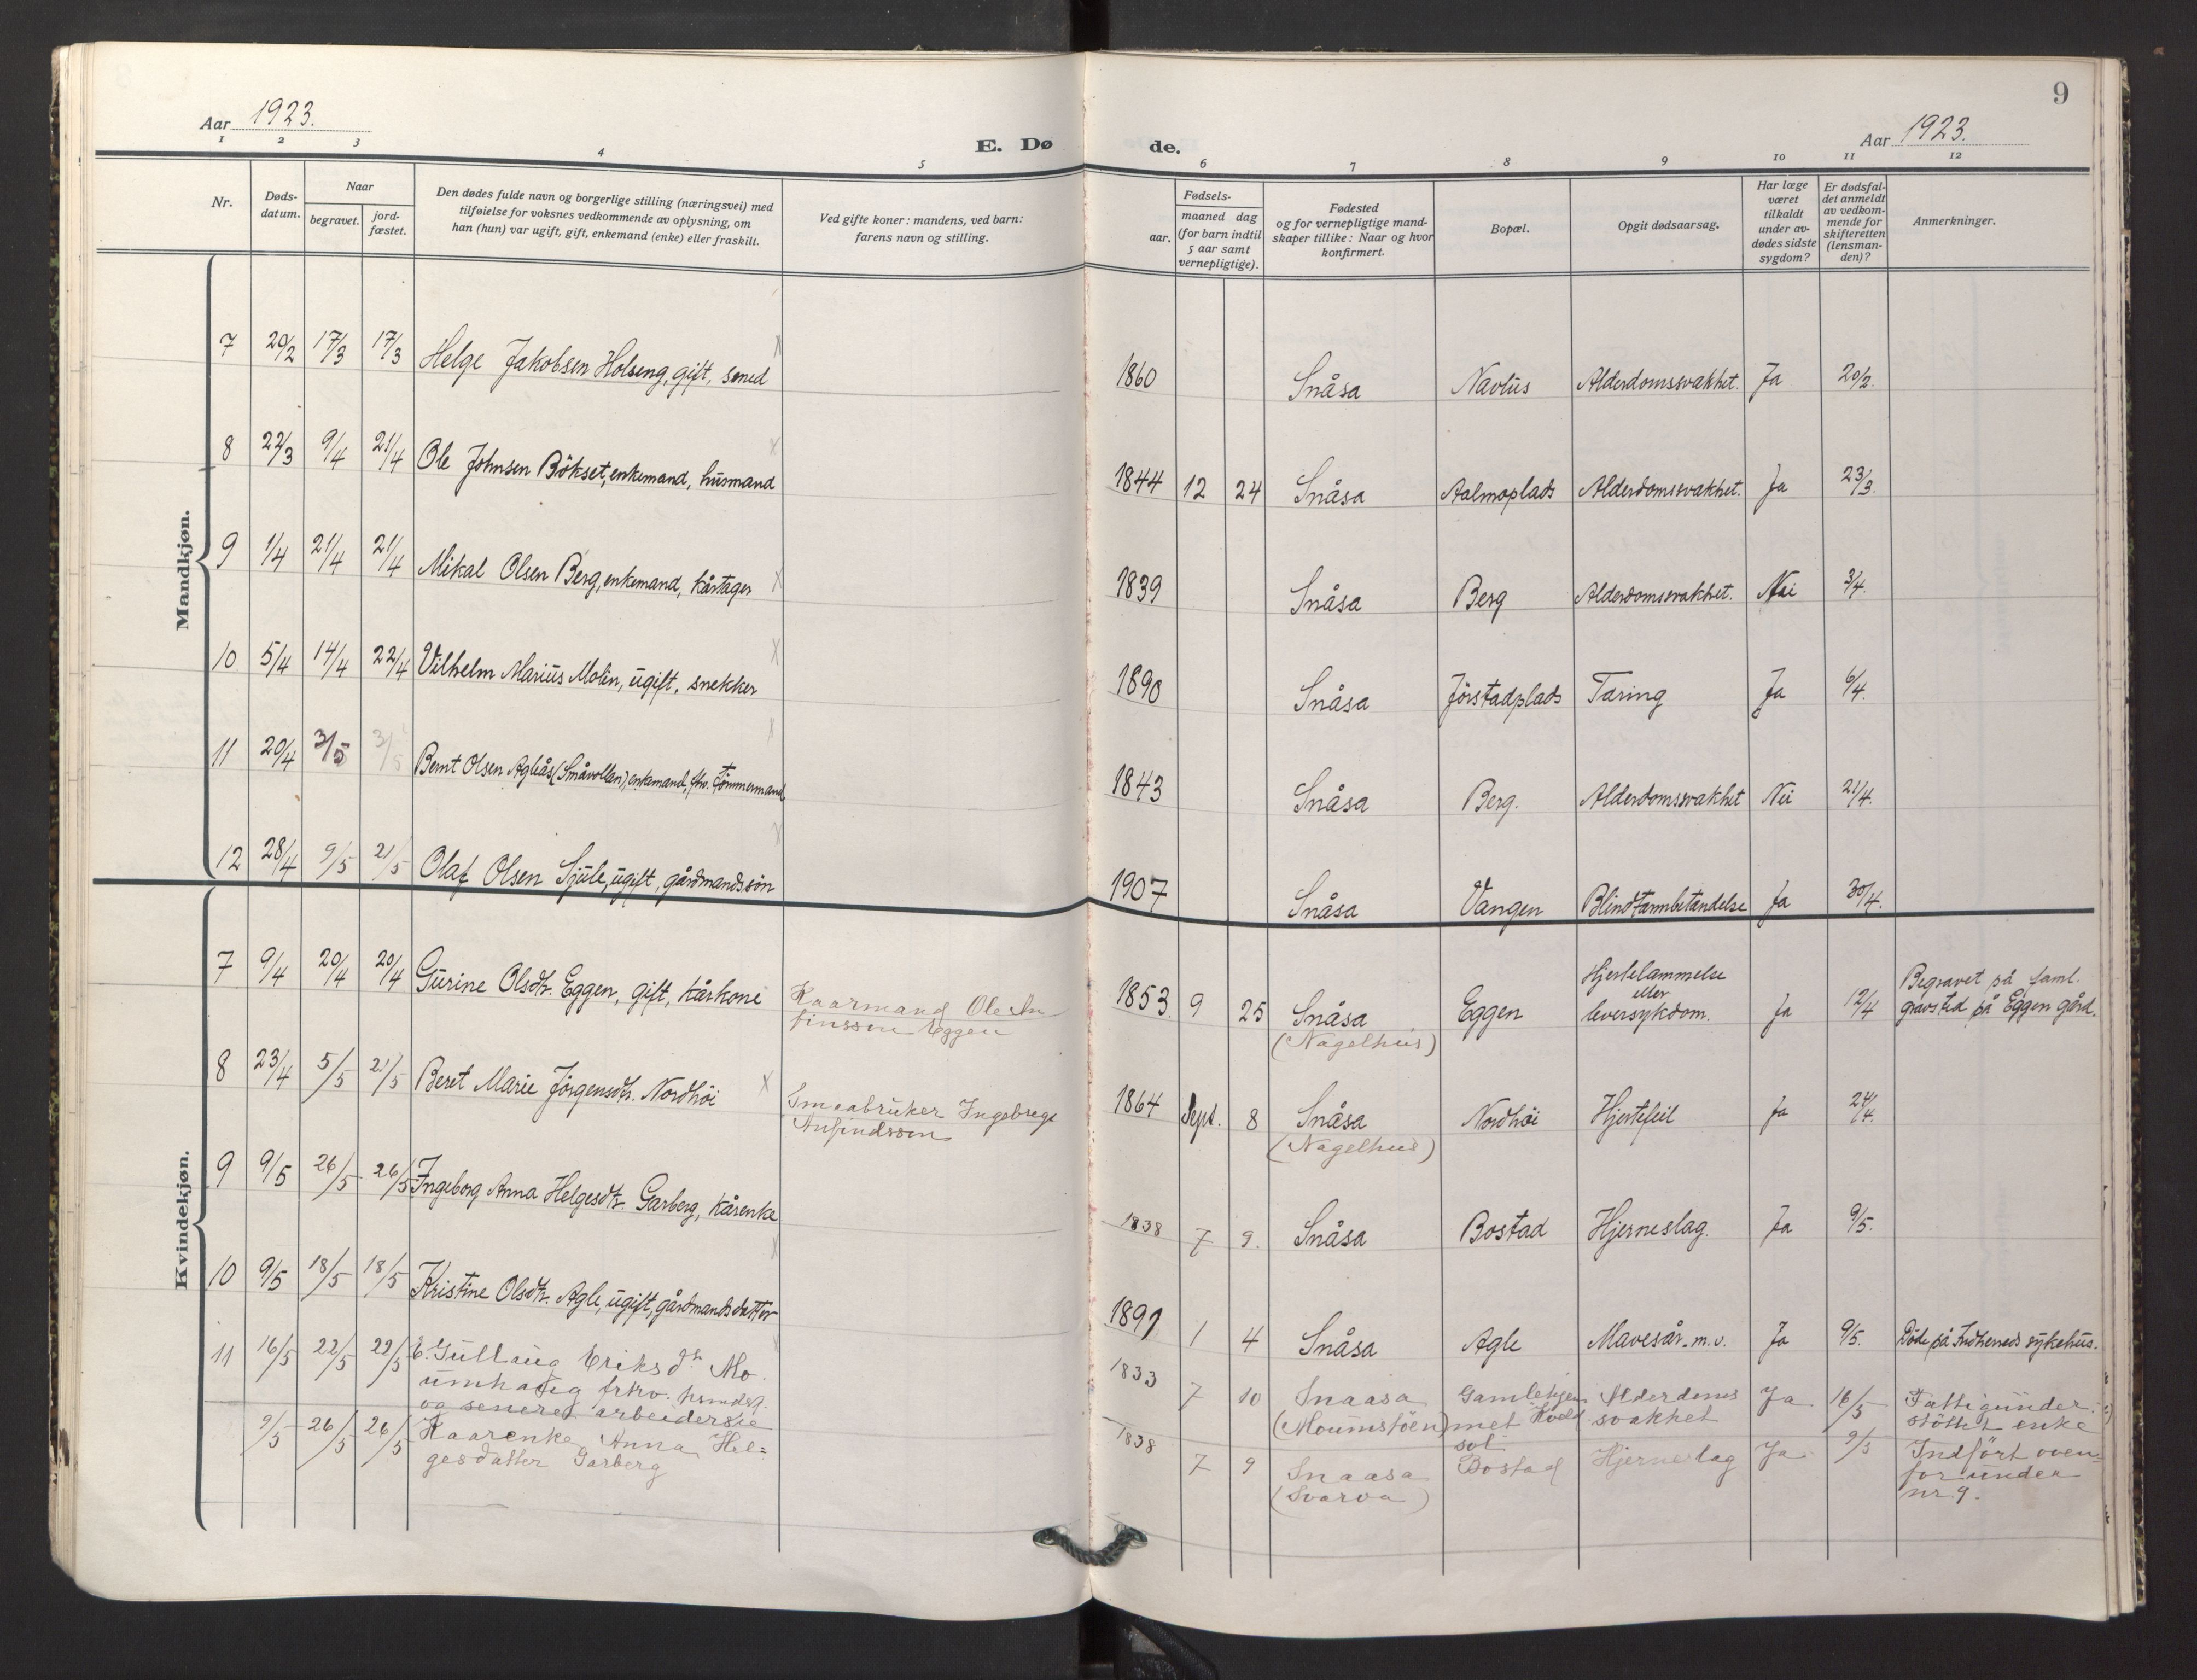 9
Aar 1923.
E. Døde.
Aar 1923.
1 2 3 4 5 6 7 8 9 10 11 12
Nr.
Døds-
datum.
Naar
begravet.
jord-
fæstet.
Den dødes fulde navn og borgerlige stilling (næringsvei) med
tilføielse for voksnes vedkommende av oplysning, om
han (hun) var ugift, gift, enkemand (enke) eller fraskilt.
Ved gifte koner: mandens, ved barn:
farens navn og stilling.
Fødsels-
aar.
maaned dag
(for barn indtil
5 aar samt
vernepligtige).
Fødested
og for vernepligtige mand-
skaper tillike: Naar og hvor
konfirmert.
Bopæl.
Opgit dødsaarsag.
Har læge
været
tilkaldt
under av-
dødes sidste
sygdom?
Er dødsfal-
det anmeldt
av vedkom-
mende for
skifteretten
(lensman-
den)?
Anmerkninger.
Mandkjøn.
7 20/2 17/3 17/3 Helge Jakobsen Holseng, gift, smed 1860 Snåsa Navlus Alderdomssvakhet. Ja 20/2.
8 22/3 9/4 21/4 Ole Johnsen Bökset, enkemand, husmand 1844 12 24 Snåsa Aalmoplads Alderdomssvakhet. Ja 23/3.
9 1/4 21/4 21/4 Mikal Olsen Berg, enkemand, kårtager 1839 Snåsa Berg Alderdomssvakhet. Nei 3/4.
10 5/4 14/4 22/4 Vilhelm Marius Molin, ugift, snekker 1890 Snåsa Jörstadplads Tæring Ja 6/4.
11 20/4 3/5 3/5 Bernt Olsen Agleås (Småvollan), enkemand, fhv. Tømmermand 1843 Snåsa Berg. Alderdomssvakhet Nei 21/4.
12 28/4 9/5 21/5 Olaf Olsen Sjule, ugift, gårdmandssön 1907 Snåsa Vangen Blindtarmbetændelse Ja 30/4.
Kvindekjøn.
7 9/4 20/4 20/4 Gurine Olsdtr. Eggen, gift, kårkone
Kaarmand Ole An-
finssen Eggen
1853 9 25 Snåsa
(Nagelhus)
Eggen
Hjertelammelse
eller
leversykdom.
Ja 12/4
Begravet på faml.
gravsted på Eggen gård.
8 23/4 5/5 21/5 Beret Marie Jörgensdtr. Nordhöi
Smaabruker Ingebregt
Anfindssen
1864 Sept. 8 Snåsa
(Nagelhus)
Nordhöi Hjertefeil Ja 24/4.
9 9/5 26/5 26/5 Ingeborg Anna Helgesdtr. Garberg, kårenke 1838 7 9. Snåsa Bostad Hjerneslag. Ja 9/5.
10 9/5 18/5 18/5 Kristine Olsdtr. Agle, ugift, gårdmandsdatter 1891 1 4 Snåsa Agle Mavesår m.v. Ja 9/5. Döde på Indherreds sykehus.
11 16/5 22/5 22/5 Gullaug Eriksdtr Mo-
umhaug
og senere arbeiderske
1833 7 10 Snaasa
(Moumstöen)
Gamlehjem-
met Kveld
sol
Alderdoms
svakhet
Ja 16/5
Fattigunder-
stöttet enke
9/5 26/5 26/5 Kaarenke Anna Hel-
gesdatter Garberg
1838 7 9 Snaasa
(Svarva)
Bostad Hjerneslag Ja 9/5
Indfört oven-
for under
nr. 9.